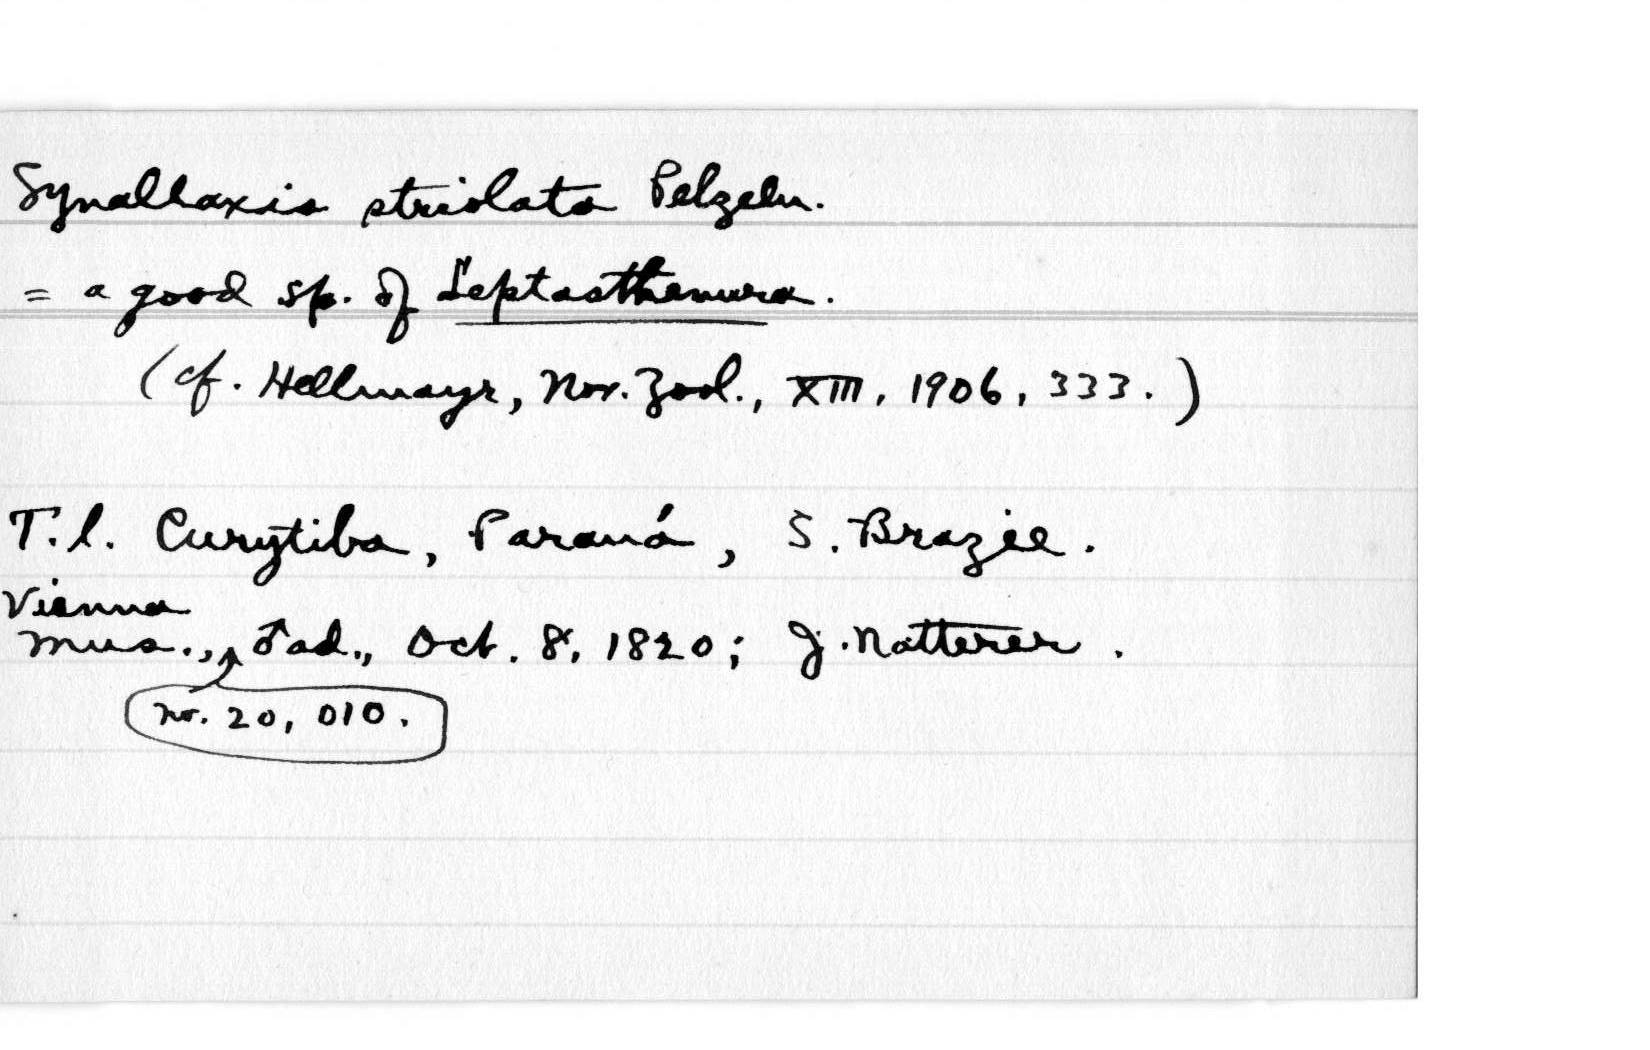 Synallaxis striolata Pelzeln.
= a good sp. of Leptasthenura.
(cf. Hellmayr, Nov. Zool., XIII, 1906, 333.)
T.l. Curytiba, Paraná, S. Brazil.
Vienna
Mus., ♂ ad., Oct. 8, 1820; J. Natterer.
no. 20,010.